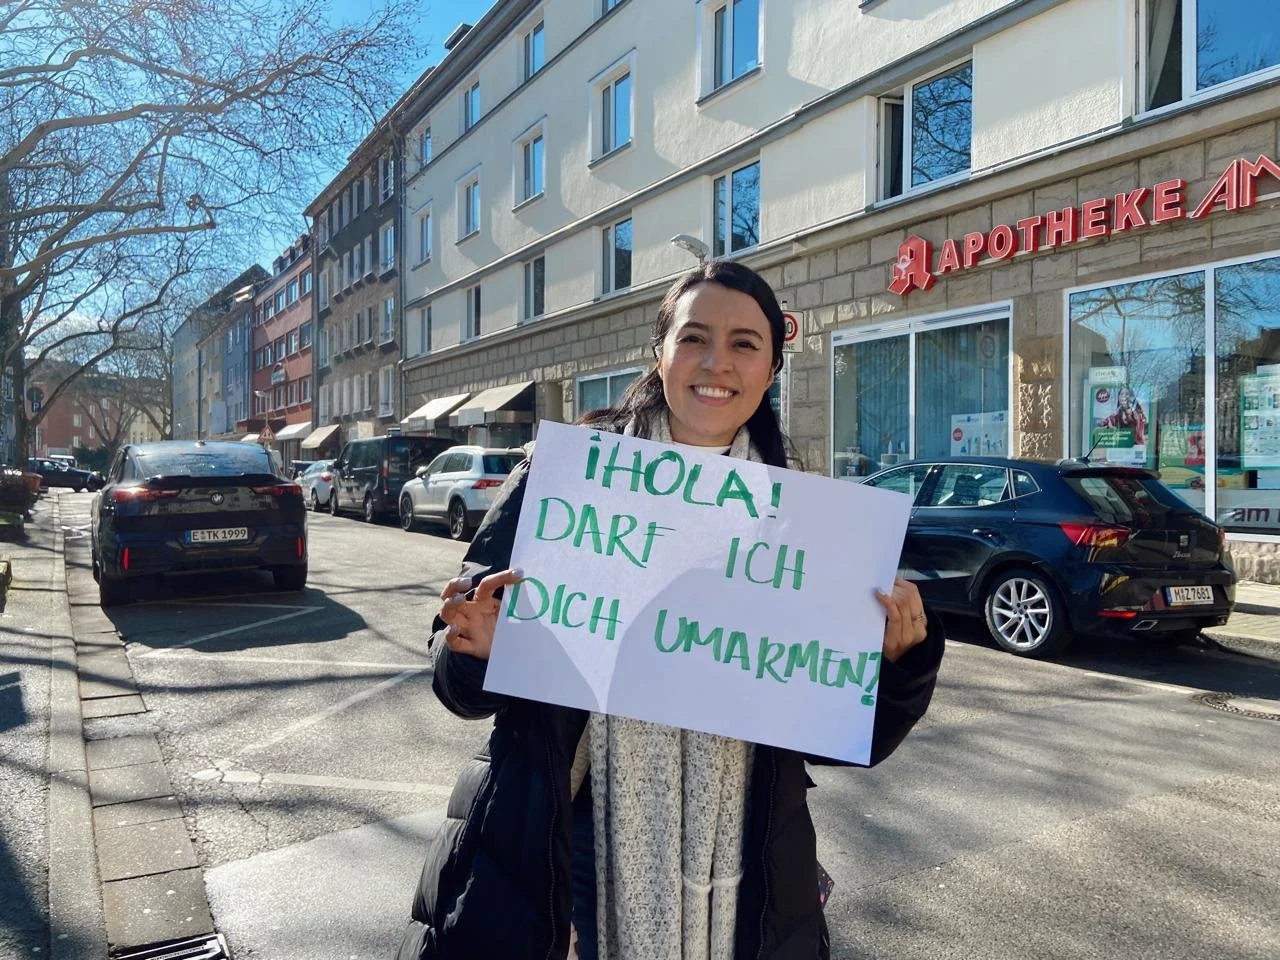 APOTHEKE AM
¡HOLA!
DARF ICH
DICH UMARMEN?
E TK 1999
M Z7681
am